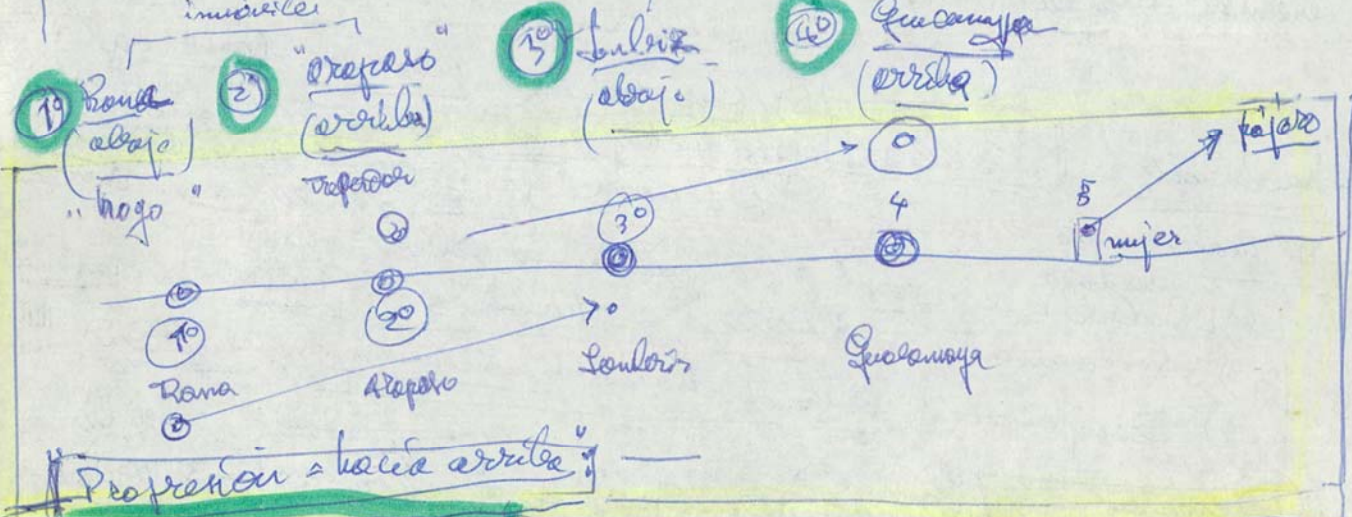 inmóviles
1º Rana
(abajo)
"hogo"
2º "arapaso"
(arriba)
trepador
3º Lombriz
(abajo)
4º Guacamaya
(arriba)
pájaro
3º
4
5
mujer
1º
2º
Rana
Arapaso
Lombriz
Guacamaya
Progresión = hacia arriba"